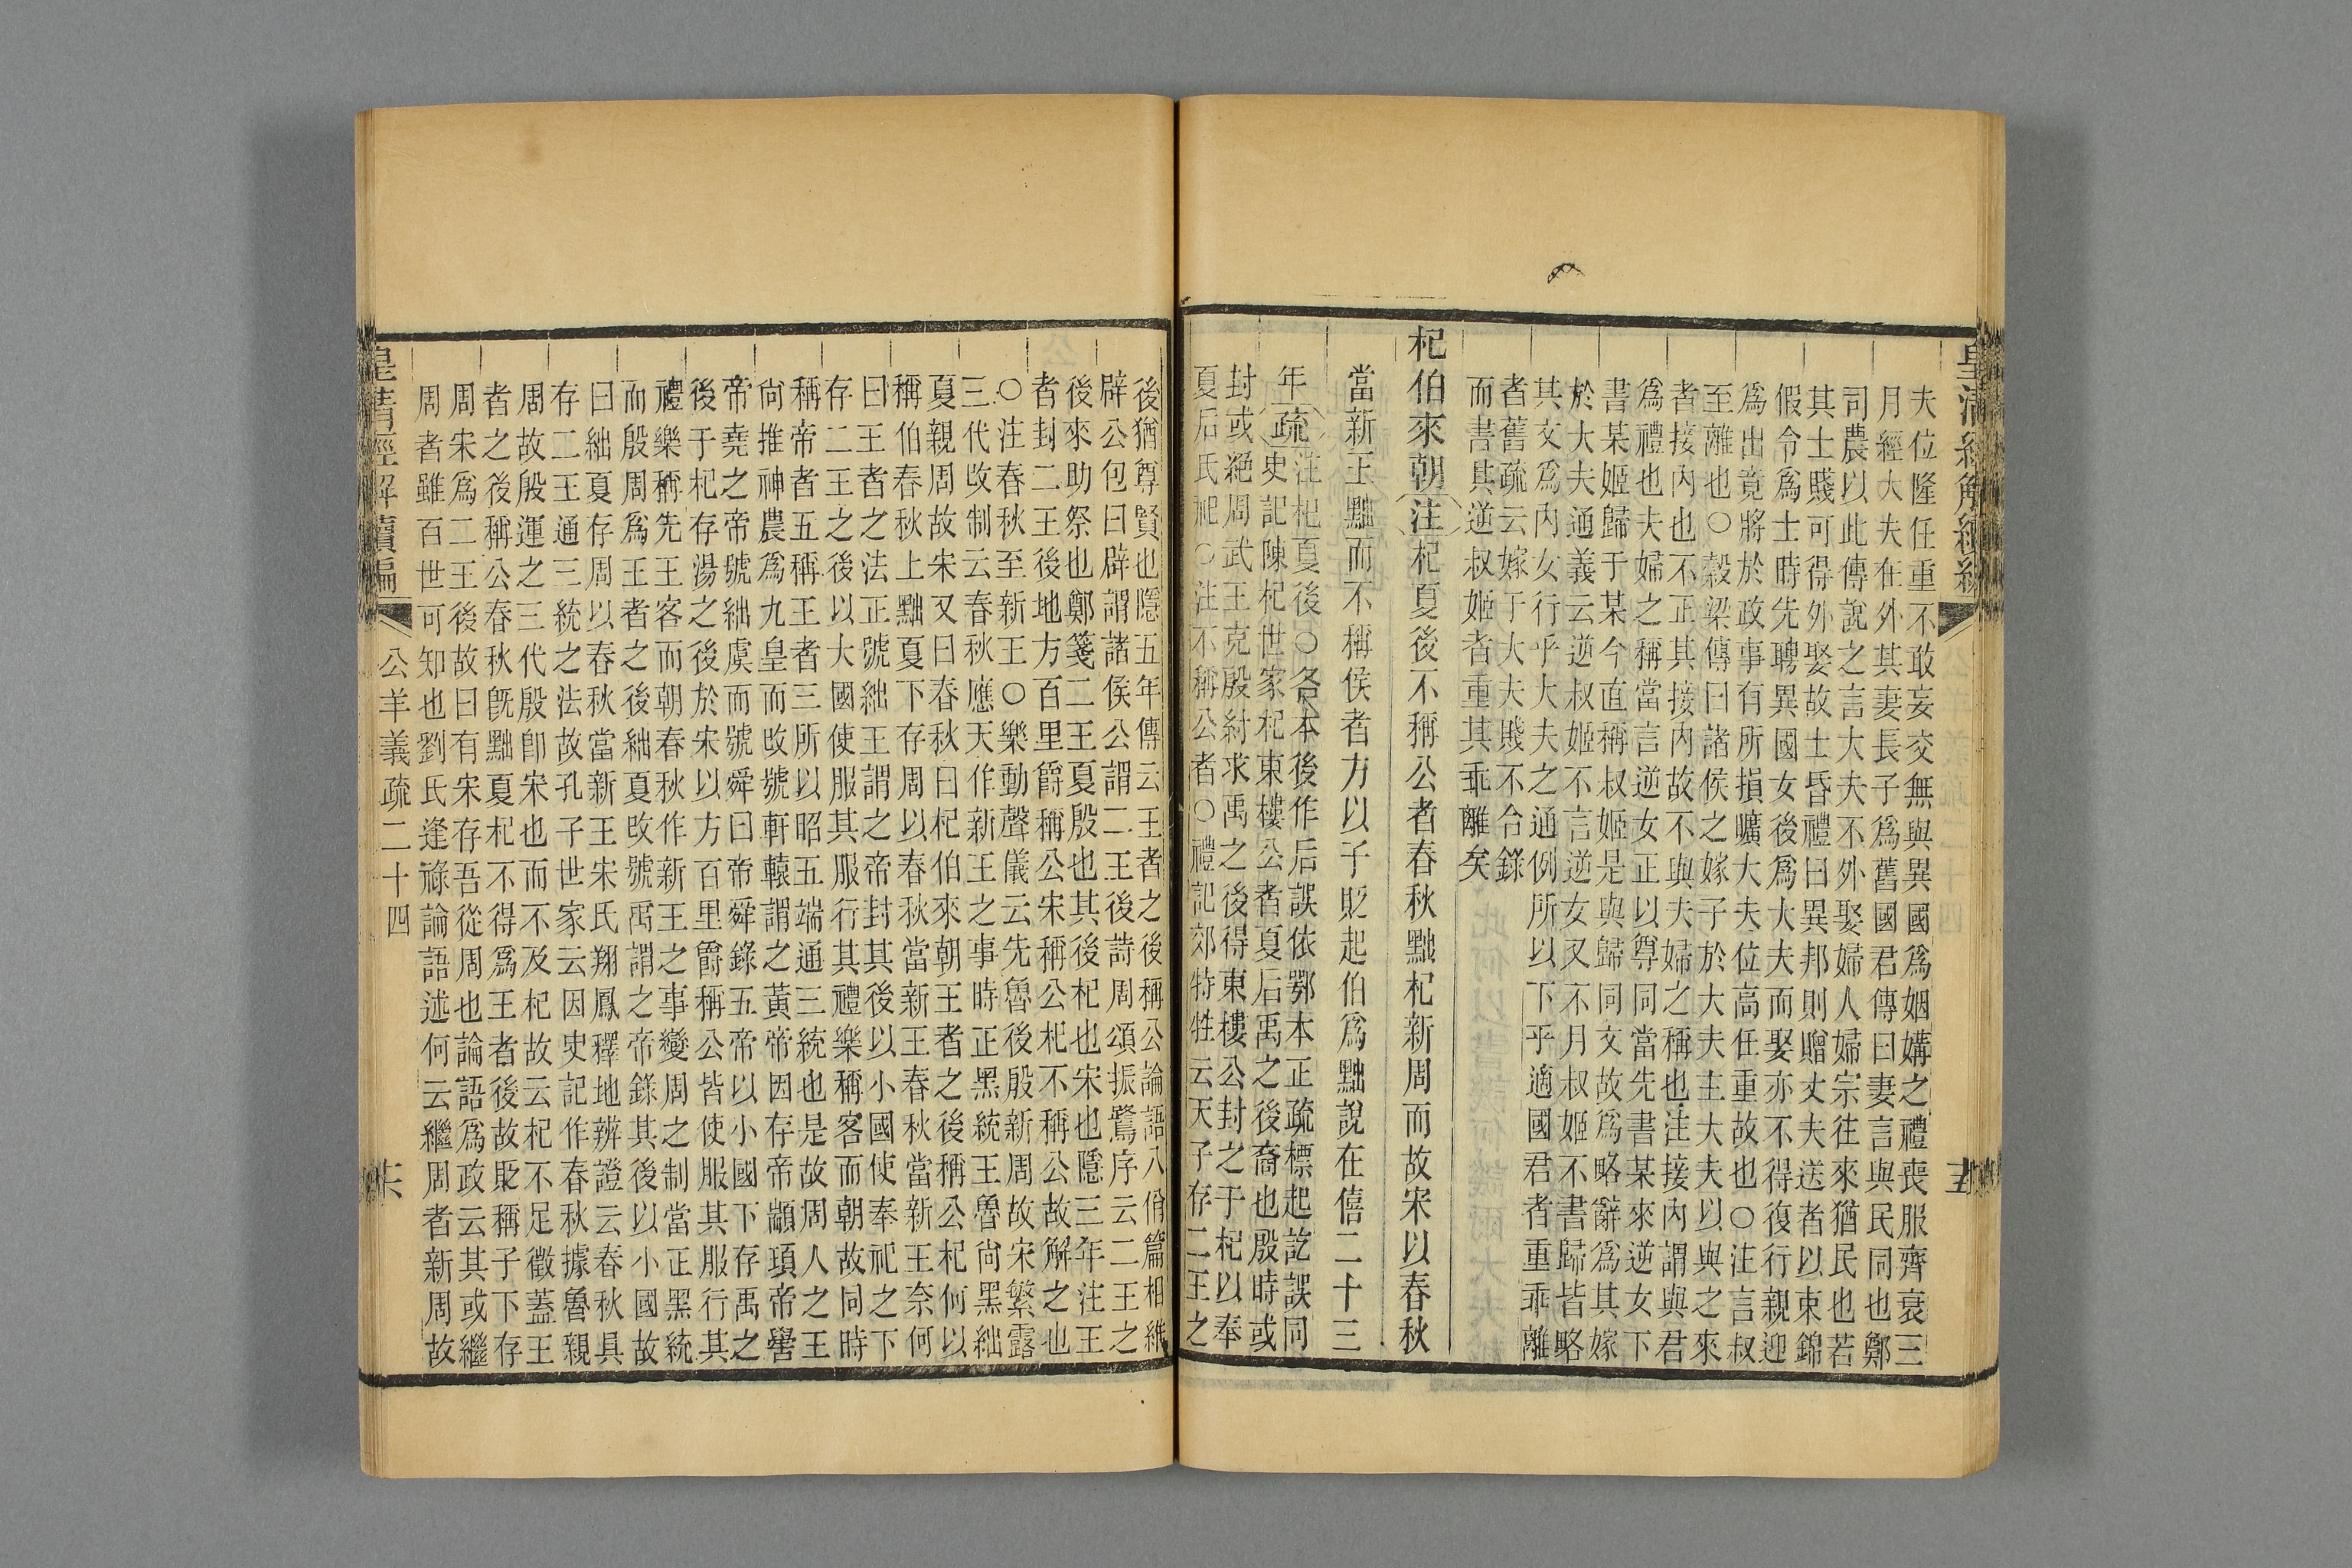 夫位隆任重不敢妄交無與異國爲姻媾之禮喪服齊衰三
月經大夫在外其妻長子爲舊國君傳曰妻言與民同也鄭
司農以此傳說之言大夫不外娶婦人婦宗往來猶民也若
其士賤可得外娶故士昏禮曰異邦則贈丈夫送者以束錦
假令爲士時先聘異國女後爲大夫而娶亦不得復行親迎
爲出竟將於政事有所損曠大夫位高任重故也○注言叔
至離也○穀梁傳曰諸侯之嫁子於大夫主大夫以與之來
者接內也不正其接內故不與夫婦之稱也注接內謂與君
爲禮也夫婦之稱當言逆女正以尊同當先書某來逆女下
書某姬歸于某今直稱叔姬是與歸同文故爲略辭爲其嫁
於大夫通義云逆叔姬不言逆女又不月叔姬不書歸皆略
其文爲內女行乎大夫之通例所以下乎適國君者重乖離
者舊疏云嫁于大夫賤不合錄
而書其逆叔姬者重其乖離矣
杞伯來朝注杞夏後不稱公者春秋黜杞新周而故宋以春秋
當新王黜而不稱侯者方以子貶起伯爲黜說在僖二十三
年疏注杞夏後○各本後作后誤依鄂本正疏標起訖誤同
史記陳杞世家杞東樓公者夏后禹之後裔也殷時或
封或絕周武王克殷紂求禹之後得東樓公封之于杞以奉
夏后氏祀○注不稱公者○禮記郊特牲云天子存二王之
皇清經解續編
五
後猶尊賢也隱五年傳云王者之後稱公論語八佾篇相維
辟公包曰辟謂諸侯公謂二王後詩周頌振鷺序云二王之
後來助祭也鄭箋二王夏殷也其後杞也宋也隱三年注王
者封二王後地方百里爵稱公宋稱公杞不稱公故解之也
○注春秋至新王○樂動聲儀云先魯後殷新周故宋繁露
三代改制云春秋應天作新王之事時正黑統王魯尙黑絀
夏親周故宋又曰春秋曰杞伯來朝王者之後稱公杞何以
稱伯春秋上黜夏下存周以春秋當新王春秋當新王奈何
曰王者之法正號絀王謂之帝封其後以小國使奉祀之下
存二王之後以大國使服其服行其禮樂稱客而朝故同時
稱帝者五稱王者三所以昭五端通三統也是故周人之王
尙推神農爲九皇而改號軒轅謂之黃帝因存帝顓頊帝嚳
帝堯之帝號絀虞而號舜曰帝舜錄五帝以小國下存禹之
後于杞存湯之後於宋以方百里爵稱公皆使服其服行其
禮樂稱先王客而朝春秋作新王之事變周之制當正黑統
而殷周爲王者之後絀夏改號禹謂之帝錄其後以小國故
曰絀夏存周以春秋當新王宋氏翔鳳釋地辨證云春秋具
存二王通三統之法故孔子世家云因史記作春秋據魯親
周故殷運之三代殷卽宋也而不及杞故云杞不足徵蓋王
者之後稱公春秋旣黜夏杞不得爲王者後故貶稱子下存
周宋爲二王後故曰有宋存吾從周也論語爲政云其或繼
周者雖百世可知也劉氏逢祿論語述何云繼周者新周故
皇清經解續編
公羊義疏二十四